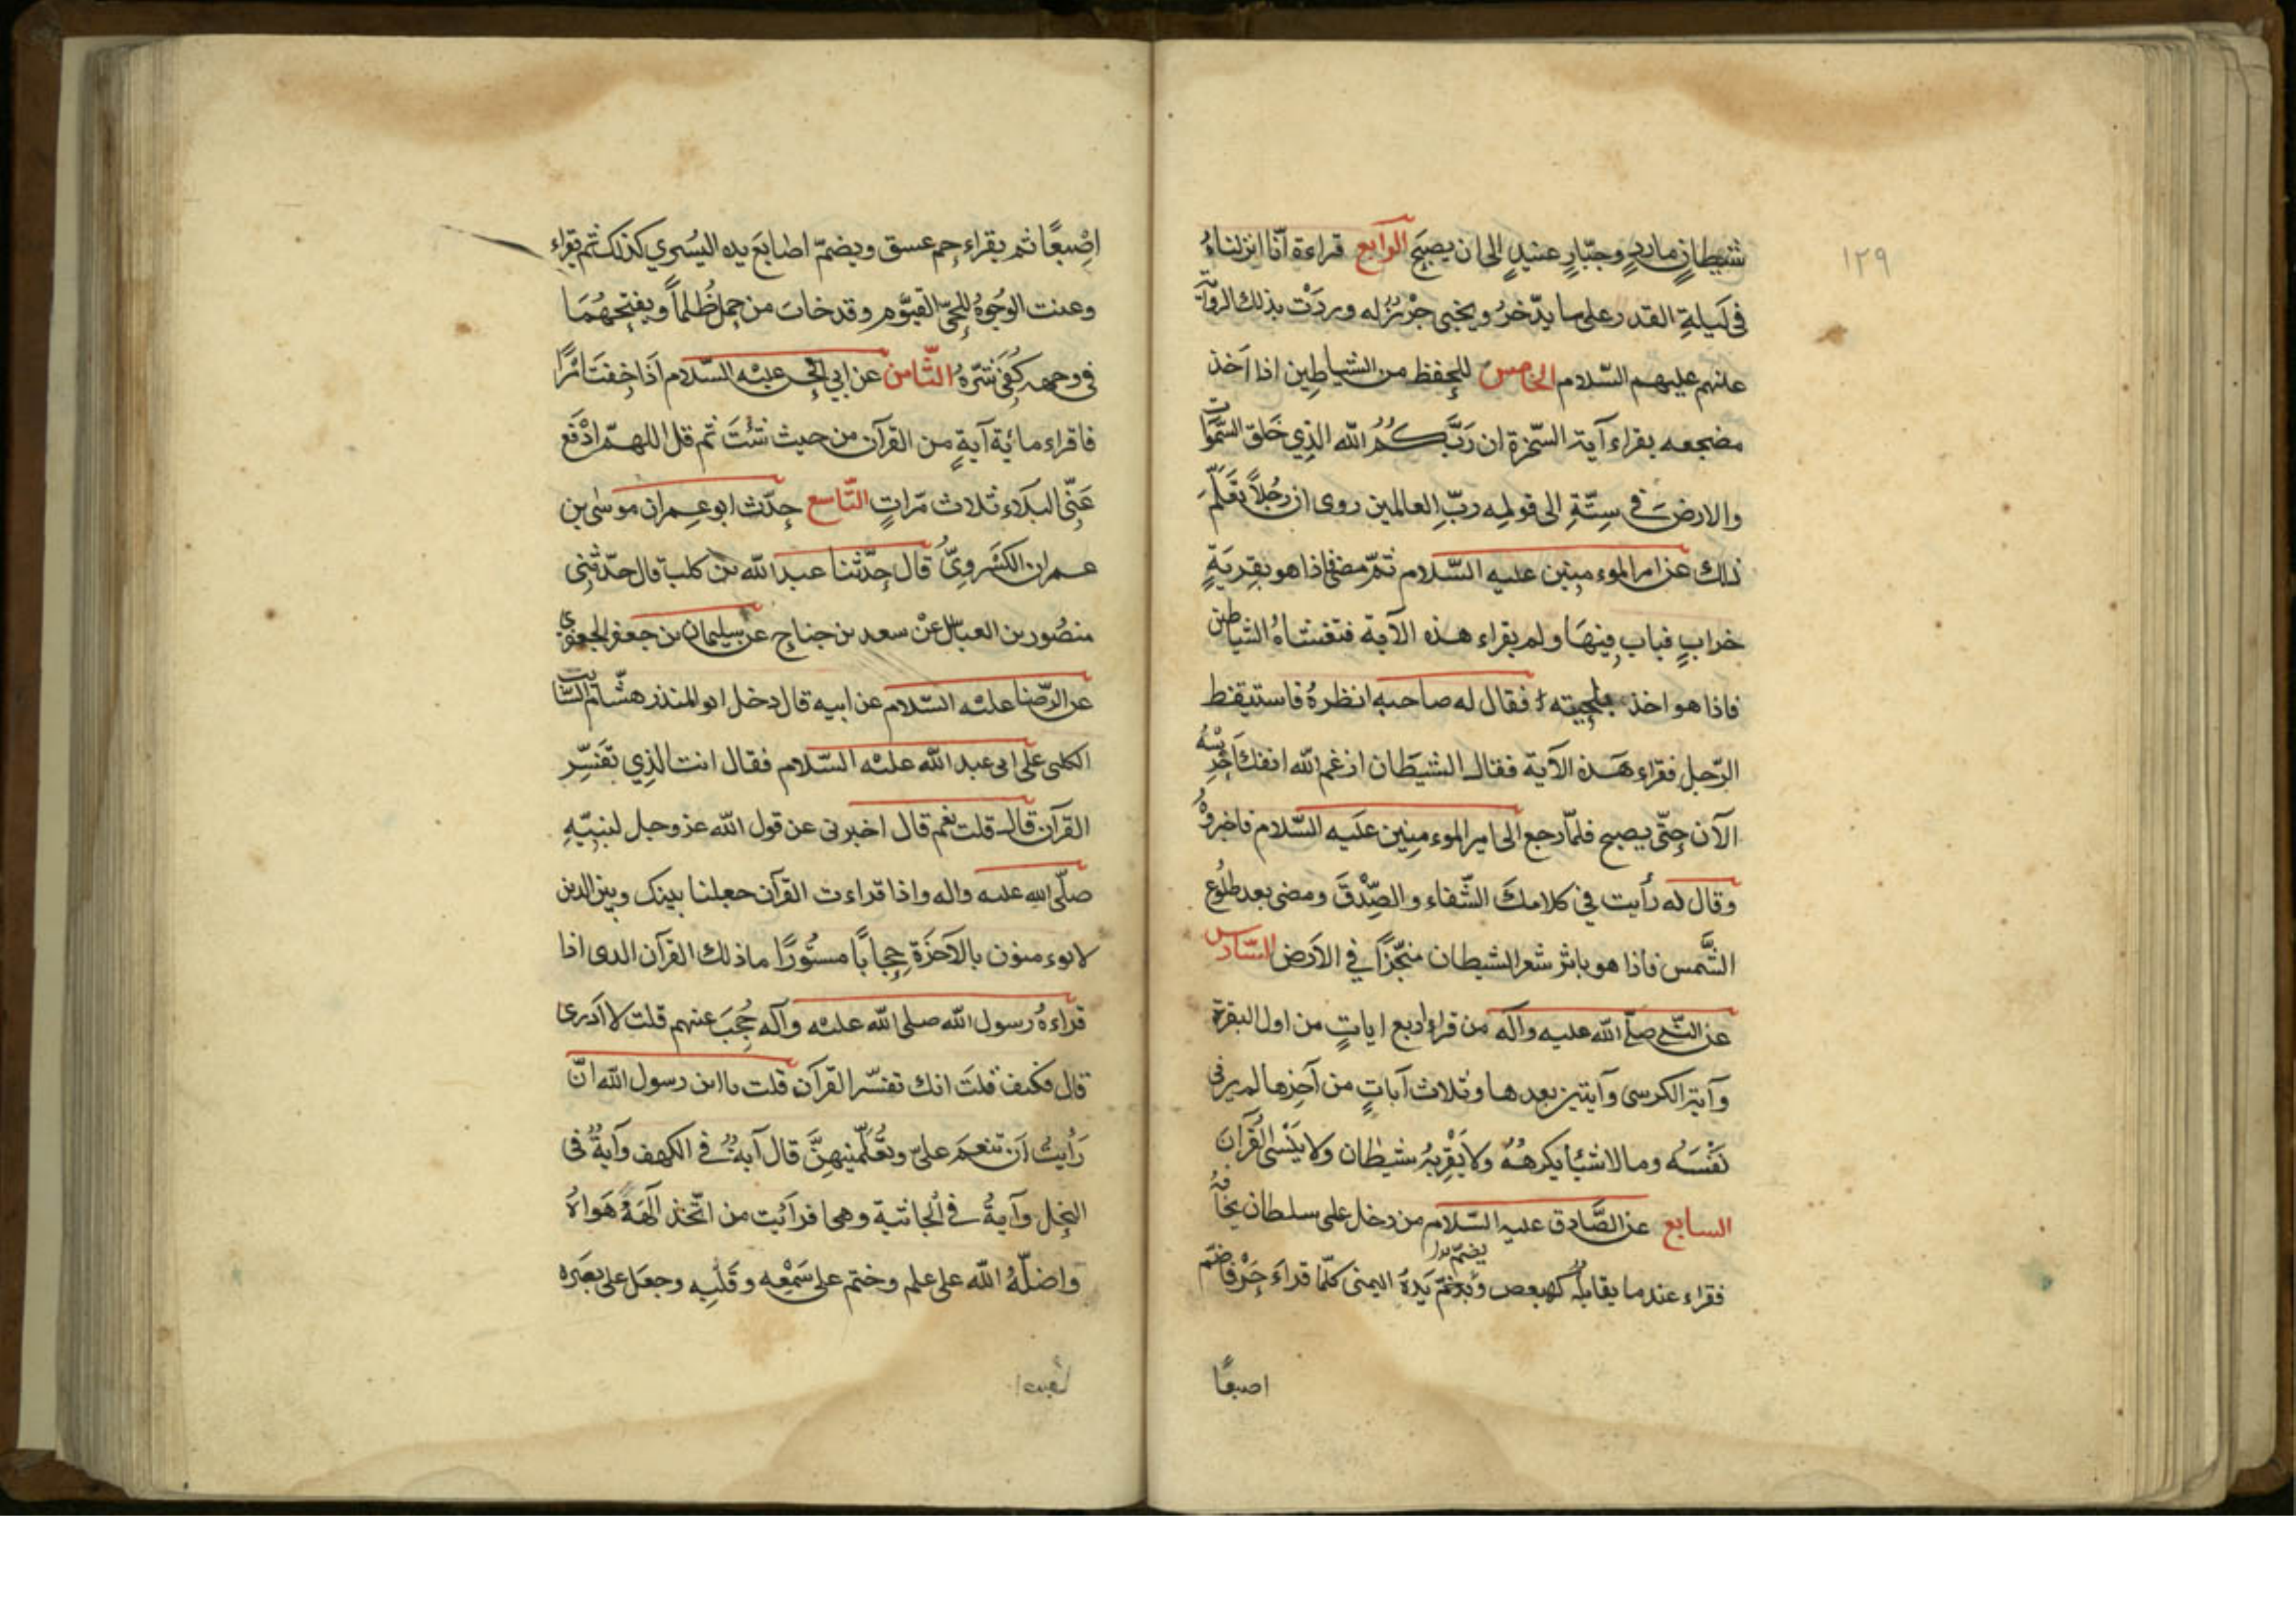 ١٢٩
شيطانٍ ماردٍ وجبّارٍ عنيدٍ الى ان يصبح الرابع قراءة انّا انزلناهُ
في لَيلةِ القدر على ما يدّخرُ ويخبى حِرْزٌ له وردَتْ بذلك الروّاية
عنهم عليهم السّلام الخامس للحِفظ من الشياطين اذا اَخذ
مضجعه يقراء آية السّخرة ان رَبَّكُمُ الله الذِي خَلق السَّموات
والارضَ في سِتّةِ الى قولِه ربّ العالمين روى ان رَجُلاً تعَلّمَ
ذلك عن امير الموءمنين عليه السّلام ثمّ مضى فاذا هو بقِريَةٍ
خرابٍ فباب فيهَا ولم يقراء هذه الآية فتغشاهُ الشياطين
فاذا هو اخذ بلحِيته فقال له صاحبه انظرهُ فاستيقظ
الرّجل فقراء هَذه الآية فقال الشيَطان ارغم الله انفك اَحْرِسْهُ
الآن حتّى يصبح فلمّا رجع الى امير الموءمنِين علَيه السَّلام فاخبرهُ
وقال له رأيت في كلامكَ الشّفاء والصِّدْقَ ومضى بعد طلُوع
الشَّمس فاذا هو باثر شعر الشيطان منجّزًا في الاَرض السّادس
عن النّبي صلّى الله عليه وآله من قراء اربع اياتٍ من اول البقرة
وآية الكرسى وآيتين بعدها وثلاث آياتٍ من آخِرها لم ير في
نَفْسَه وماله شيئًا يكرهُهُ ولا يَقْربهُ شيطان ولا يَنْسى القُرآن
السابع عن الصَّادق عليه السّلام من دخل على سلطان يخافُهُ
يضمّ يدا
فقراء عند ما يقابله كهيعص ويضمّ يَدهُ اليمنى كلّما قراءَ حَرْفًا ضمّ
اصبعًا
اِصْبعًا ثم يقراء حم عسق ويضمّ اصابعَ يده اليُسرى كذلك ثم يقراء
وعنت الوجُوهُ للِحيّ القيّوم وقد خابَ من حمل ظُلماً ويفتحهُمَا
فى وجهه كُفِىَ شرّهُ الثّامن عن ابى الحسن عليْه السّلام اذَا خِفتَ امْرًا
فاقراء مائية آيةٍ من القرآن من حيث شئتَ ثم قل اللهمّ ادْفَع
عَنِّى البلَاء ثلاث مرّاتٍ التّاسع حدّث ابو عمران موسٰى بن
عمران الكسْروِىُّ قال حدّثنا عبد الله بن كليب قال حدّثنِى
منصُور بن العباس عنْ سعد بن جناح عن سليمان بن جعفر الجعفرى
عن الرّضا عليْه السّلام عن ابيه قال دخل ابو المنذر هشام السّايب
الكلبى على ابى عبد الله عليْه السّلام فقال انت الذِي تفَسِّر
القرآن قال قلت نعم قال اخبرنى عن قول الله عز وجل لنبيّهِ
صلّى الله عليه واله واذا قراءت القرآن جعلنا بينك وبين الذين
لا يوءمنون بالآخرَة حِجابًا مستُورًا ما ذلك القرآن الذى اذا
قراءهُ رسول الله صلى الله عليْه وآله حُجِبَ عنهم قلت لا اَدرى
قال فكيف قلتَ انك تفسّر القرآن قلت يا ابن رسول الله انّ
رَأيتَ اَن تنعمَ علىّ وتُعلّمنيهِنَّ قال آيةٌ فى الكهف وآيةٌ فى
النّحل وآيةٌ فى الجاثية وهى افرأيت من اتّخذ آلههُ هَواهُ
واضلّهُ الله على علم وختم على سَمْعِه وقَلبِه وجعَل على بصَره